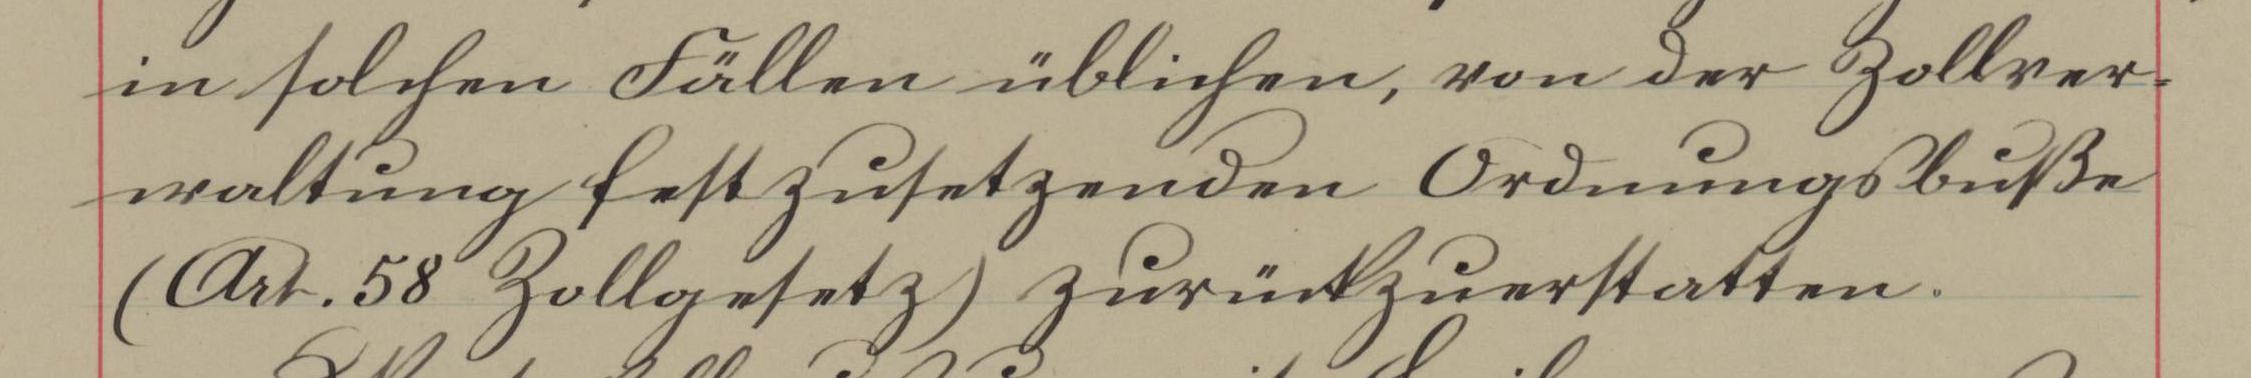 in solchen Fällen üblichen, von der Zollver-
waltung festzusetzenden Ordnungsbuße
(Art. 58 Zollgesetz) zurückzuerstatten.